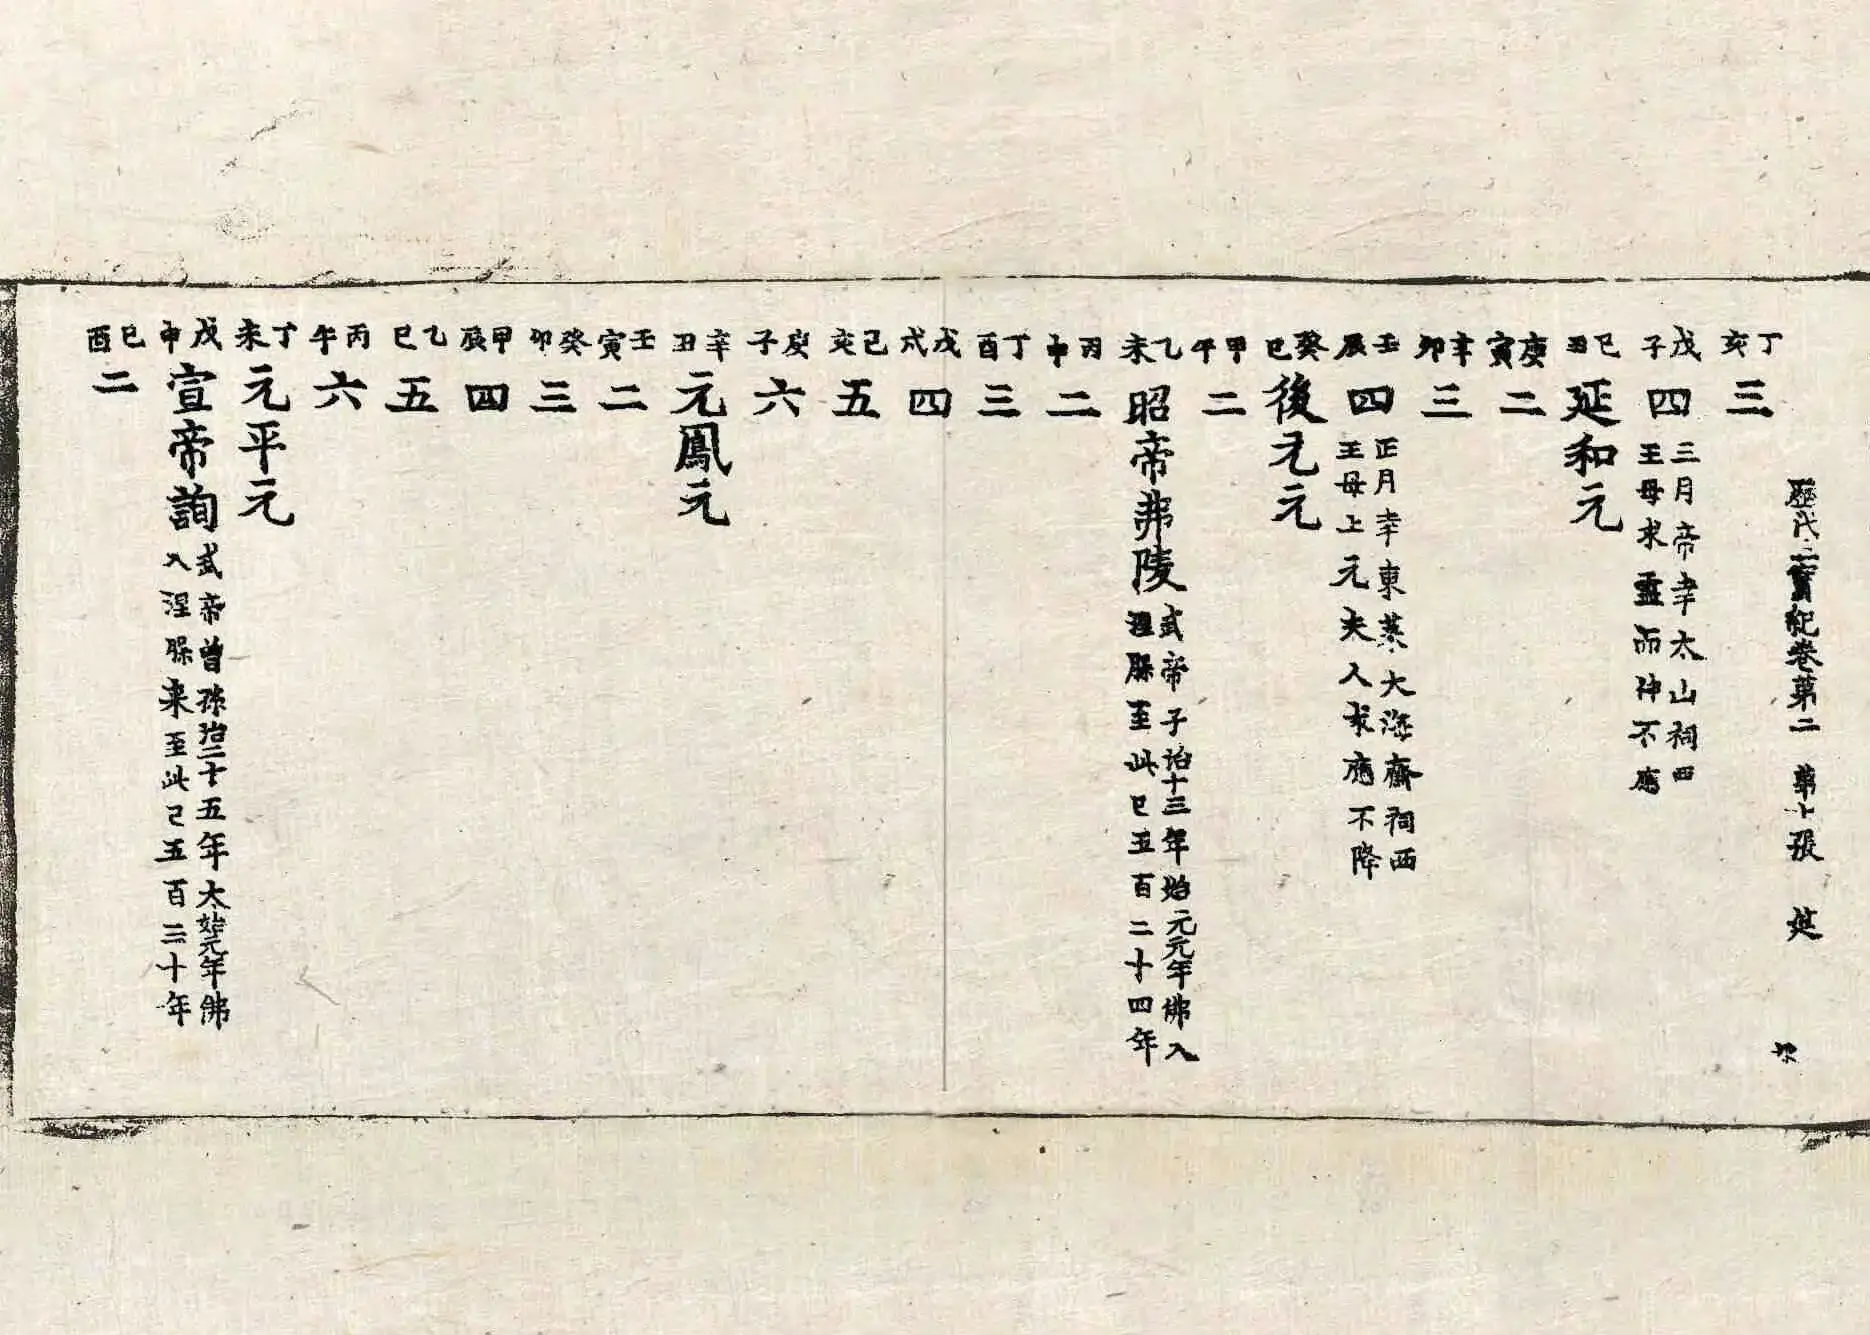 歷代三寶紀卷第二 第七張
丁亥 三
戊子 四 三月帝幸太山祠四
王母求靈而神不應
己丑 延和元
庚寅 二
辛卯 三
壬辰 四 正月幸東萊大海齋祠西
王母上元夫人求應不降
癸巳 後元元
甲午 二
乙未 昭帝弗陵 武帝子治十三年始元元年佛入
涅槃至此已五百二十四年
丙申 二
丁酉 三
戊戌 四
己亥 五
庚子 六
辛丑 元鳳元
壬寅 二
癸卯 三
甲辰 四
乙巳 五
丙午 六
丁未 元平元
戊申 宣帝詢 武帝曾孫治二十五年太始元年佛
入涅槃来至此已五百三十年
己酉 二